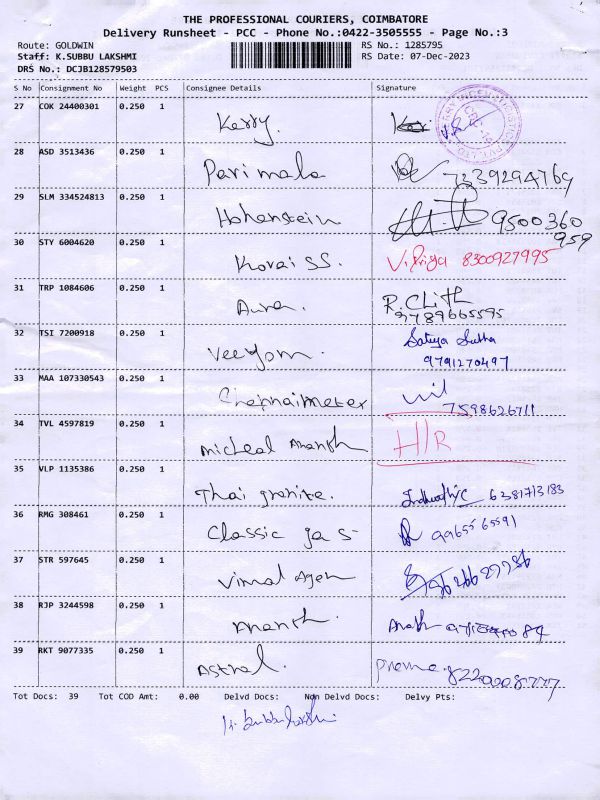 THE PROFESSIONAL COURIERS, COIMBATORE
Delivery Runsheet - PCC - Phone No.:0422-3505555 - Page No.:3
Route: GOLDWIN RS No.: 1285795
Staff: K.SUBBU LAKSHMI RS Date: 07-Dec-2023
DRS No.: DCJB128579503
S No Consignment No Weight PCS Consignee Details Signature
27 COK 24400301 0.250 1 Kerry.
28 ASD 3513436 0.250 1 Parimala 7339294769
29 SLM 334524813 0.250 1 Hohenstein 9500360
959
30 STY 6004620 0.250 1 Kovai SS. V. Priya 8300927995
31 TRP 1084606 0.250 1 Aura. R. Clith
9789665595
32 TSI 7200918 0.250 1 Veeyom. Satya Subha
9791270497
33 MAA 107330543 0.250 1 Chennaimetex
7598626711
34 TVL 4597819 0.250 1 Micheal Ananth H/R
35 VLP 1135386 0.250 1 Thai granite. 6381713183
36 RMG 308461 0.250 1 Classic gas 9965565591
37 STR 597645 0.250 1 Vimal Agen
38 RJP 3244598 0.250 1 Ananth.
39 RKT 9077335 0.250 1 Astral. Prema 8220008777
Tot Docs: 39 Tot COD Amt: 0.00 Delvd Docs: Non Delvd Docs: Delvy Pts: